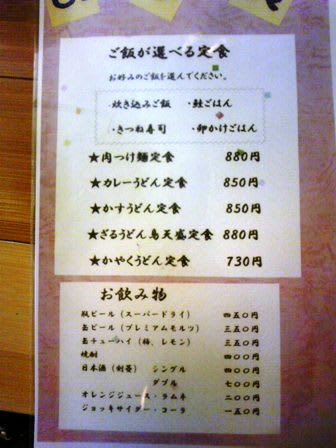 ご飯が選べる定食
お好みのご飯を選んでください。
・炊き込みご飯 ・鮭ごはん
・きつね寿司 ・卵かけごはん
★肉つけ麺定食 880円
★カレーうどん定食 850円
★かすうどん定食 850円
★ざるうどん鳥天盛定食 880円
★かやくうどん定食 730円
お飲み物
瓶ビール（スーパードライ） 四五〇円
缶ビール（プレミアムモルツ） 三五〇円
缶チューハイ（梅、レモン） 三五〇円
焼酎 四〇〇円
日本酒（剣菱） シングル 四〇〇円
ダブル 七〇〇円
オレンジジュース・ラムネ 二〇〇円
ジョッキサイダー・コーラ 一五〇円